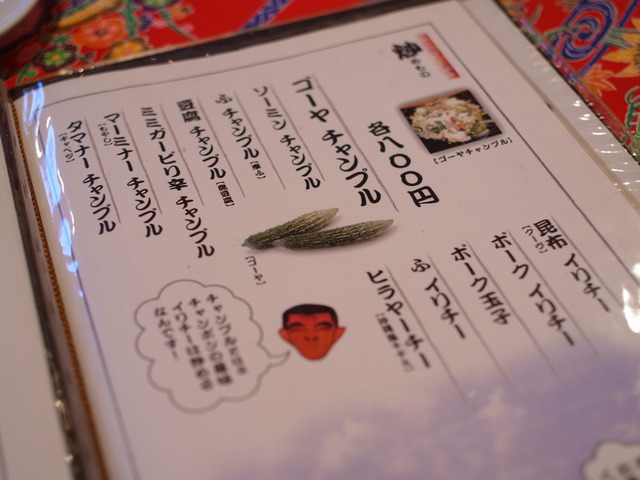 炒めもの
[ゴーヤチャンプル]
各八〇〇円
ゴーヤ チャンプル
ソーミン チャンプル
ふ チャンプル
豆腐 チャンプル
ミミガーピリ辛 チャンプル
マーミナー チャンプル
[もやし]
タマナー チャンプル
[キャベツ]
[ゴーヤ]
昆布 イリチー
[クーブ]
ポーク イリチー
ポーク 玉子
ふ イリチー
ヒラヤーチー
チャンプルとは
チャンポンの意味
イリチーは炒める
なんです!